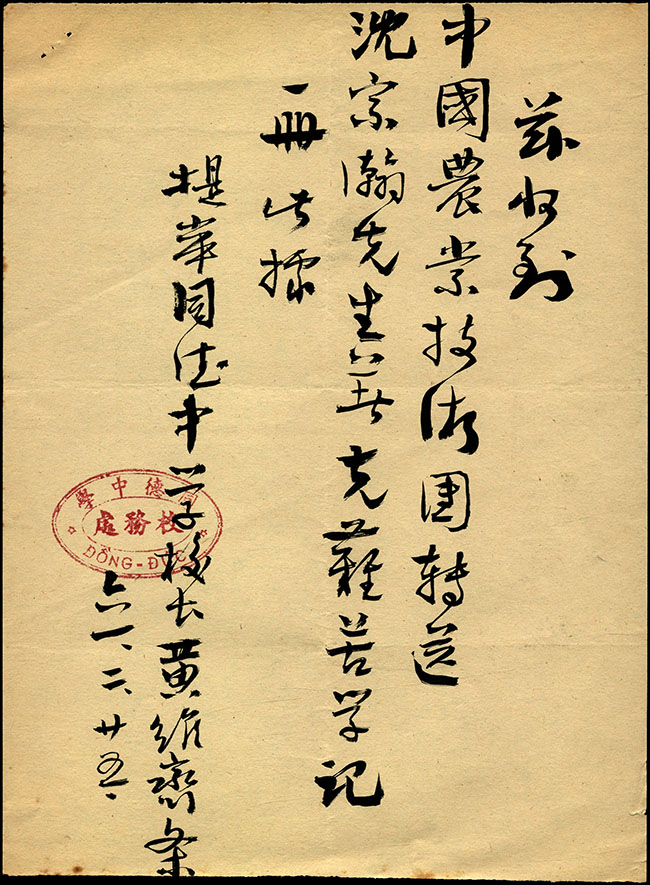 兹收到
中國農業技術團轉送
沈宗瀚先生著克難苦学記
一冊此據
堤岸同德中学校长黄維齋条
六一、二、廿五、
同德中學
校務處
ĐỒNG-ĐỨC